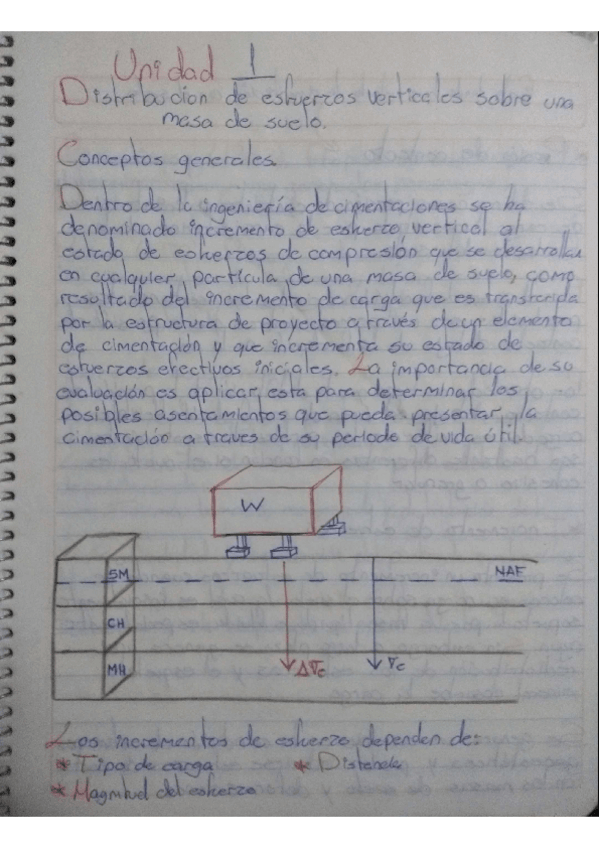 Unidad 1
Distribucion de esfuerzos verticales sobre una
masa de suelo.
Conceptos generales.
Dentro de la ingeniería de cimentaciones se ha
denominado incremento de esfuerzo vertical al
estado de esfuerzos de compresión que se desarrollan
en cualquier partícula de una masa de suelo, como
resultado del incremento de carga que es transferida
por la estructura de proyecto a través de un elemento
de cimentación y que incrementa su estado de
esfuerzos efectivos iniciales. La importancia de su
evaluación es aplicar esta para determinar los
posibles asentamientos que pueda presentar la
cimentación a traves de su periodo de vida útil.
W
SM NAF
CH
MH Δσc σc
Los incrementos de esfuerzo dependen de:
* Tipo de carga * Distancia
* Magnitud del esfuerzo